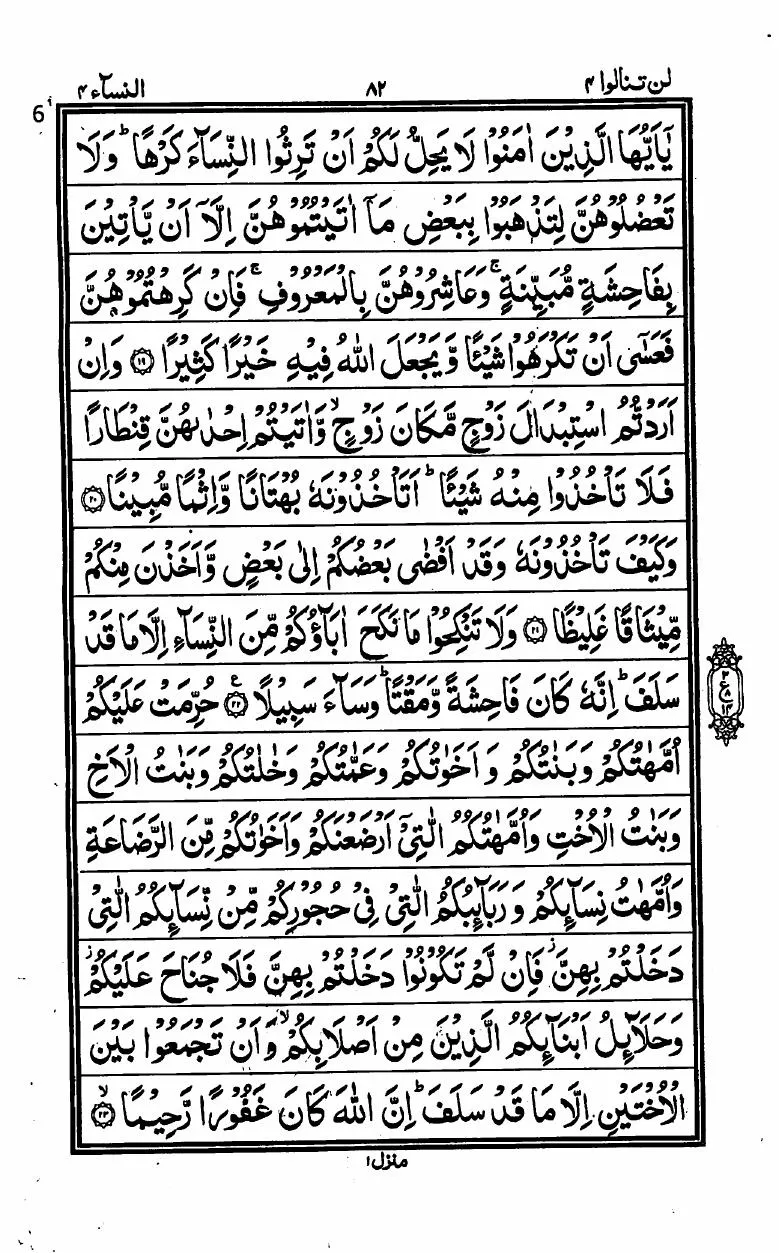 لن تنالوا ۴
۸۲
النسآء ۴
6
يٰۤاَيُّهَا الَّذِيْنَ اٰمَنُوْا لَا يَحِلُّ لَكُمْ اَنْ تَرِثُوا النِّسَآءَ كَرْهًا ؕ وَلَا
تَعْضُلُوْهُنَّ لِتَذْهَبُوْا بِبَعْضِ مَاۤ اٰتَيْتُمُوْهُنَّ اِلَّاۤ اَنْ يَّاْتِيْنَ
بِفَاحِشَةٍ مُّبَيِّنَةٍ ۚ وَعَاشِرُوْهُنَّ بِالْمَعْرُوْفِ ۚ فَاِنْ كَرِهْتُمُوْهُنَّ
فَعَسٰۤى اَنْ تَكْرَهُوْا شَيْـًٔا وَّيَجْعَلَ اللّٰهُ فِيْهِ خَيْرًا كَثِيْرًا ۱۹ وَاِنْ
اَرَدْتُّمُ اسْتِبْدَالَ زَوْجٍ مَّكَانَ زَوْجٍ ۙ وَّاٰتَيْتُمْ اِحْدٰىهُنَّ قِنْطَارًا
فَلَا تَاْخُذُوْا مِنْهُ شَيْـًٔا ؕ اَتَاْخُذُوْنَهٗ بُهْتَانًا وَّاِثْمًا مُّبِيْنًا ۲۰
وَكَيْفَ تَاْخُذُوْنَهٗ وَقَدْ اَفْضٰى بَعْضُكُمْ اِلٰى بَعْضٍ وَّاَخَذْنَ مِنْكُمْ
مِّيْثَاقًا غَلِيْظًا ۲۱ وَلَا تَنْكِحُوْا مَا نَكَحَ اٰبَآؤُكُمْ مِّنَ النِّسَآءِ اِلَّا مَا قَدْ
سَلَفَ ؕ اِنَّهٗ كَانَ فَاحِشَةً وَّمَقْتًا ؕ وَسَآءَ سَبِيْلًا ۲۲ ع حُرِّمَتْ عَلَيْكُمْ
اُمَّهٰتُكُمْ وَبَنٰتُكُمْ وَاَخَوٰتُكُمْ وَعَمّٰتُكُمْ وَخٰلٰتُكُمْ وَبَنٰتُ الْاَخِ
وَبَنٰتُ الْاُخْتِ وَاُمَّهٰتُكُمُ الّٰتِيْۤ اَرْضَعْنَكُمْ وَاَخَوٰتُكُمْ مِّنَ الرَّضَاعَةِ
وَاُمَّهٰتُ نِسَآئِكُمْ وَرَبَآئِبُكُمُ الّٰتِيْ فِيْ حُجُوْرِكُمْ مِّنْ نِّسَآئِكُمُ الّٰتِيْ
دَخَلْتُمْ بِهِنَّ ؗ فَاِنْ لَّمْ تَكُوْنُوْا دَخَلْتُمْ بِهِنَّ فَلَا جُنَاحَ عَلَيْكُمْ ؗ
وَحَلَآئِلُ اَبْنَآئِكُمُ الَّذِيْنَ مِنْ اَصْلَابِكُمْ ۙ وَاَنْ تَجْمَعُوْا بَيْنَ
الْاُخْتَيْنِ اِلَّا مَا قَدْ سَلَفَ ؕ اِنَّ اللّٰهَ كَانَ غَفُوْرًا رَّحِيْمًا ۙ ۲۳
ع
۸
۱۴
منزل ۱